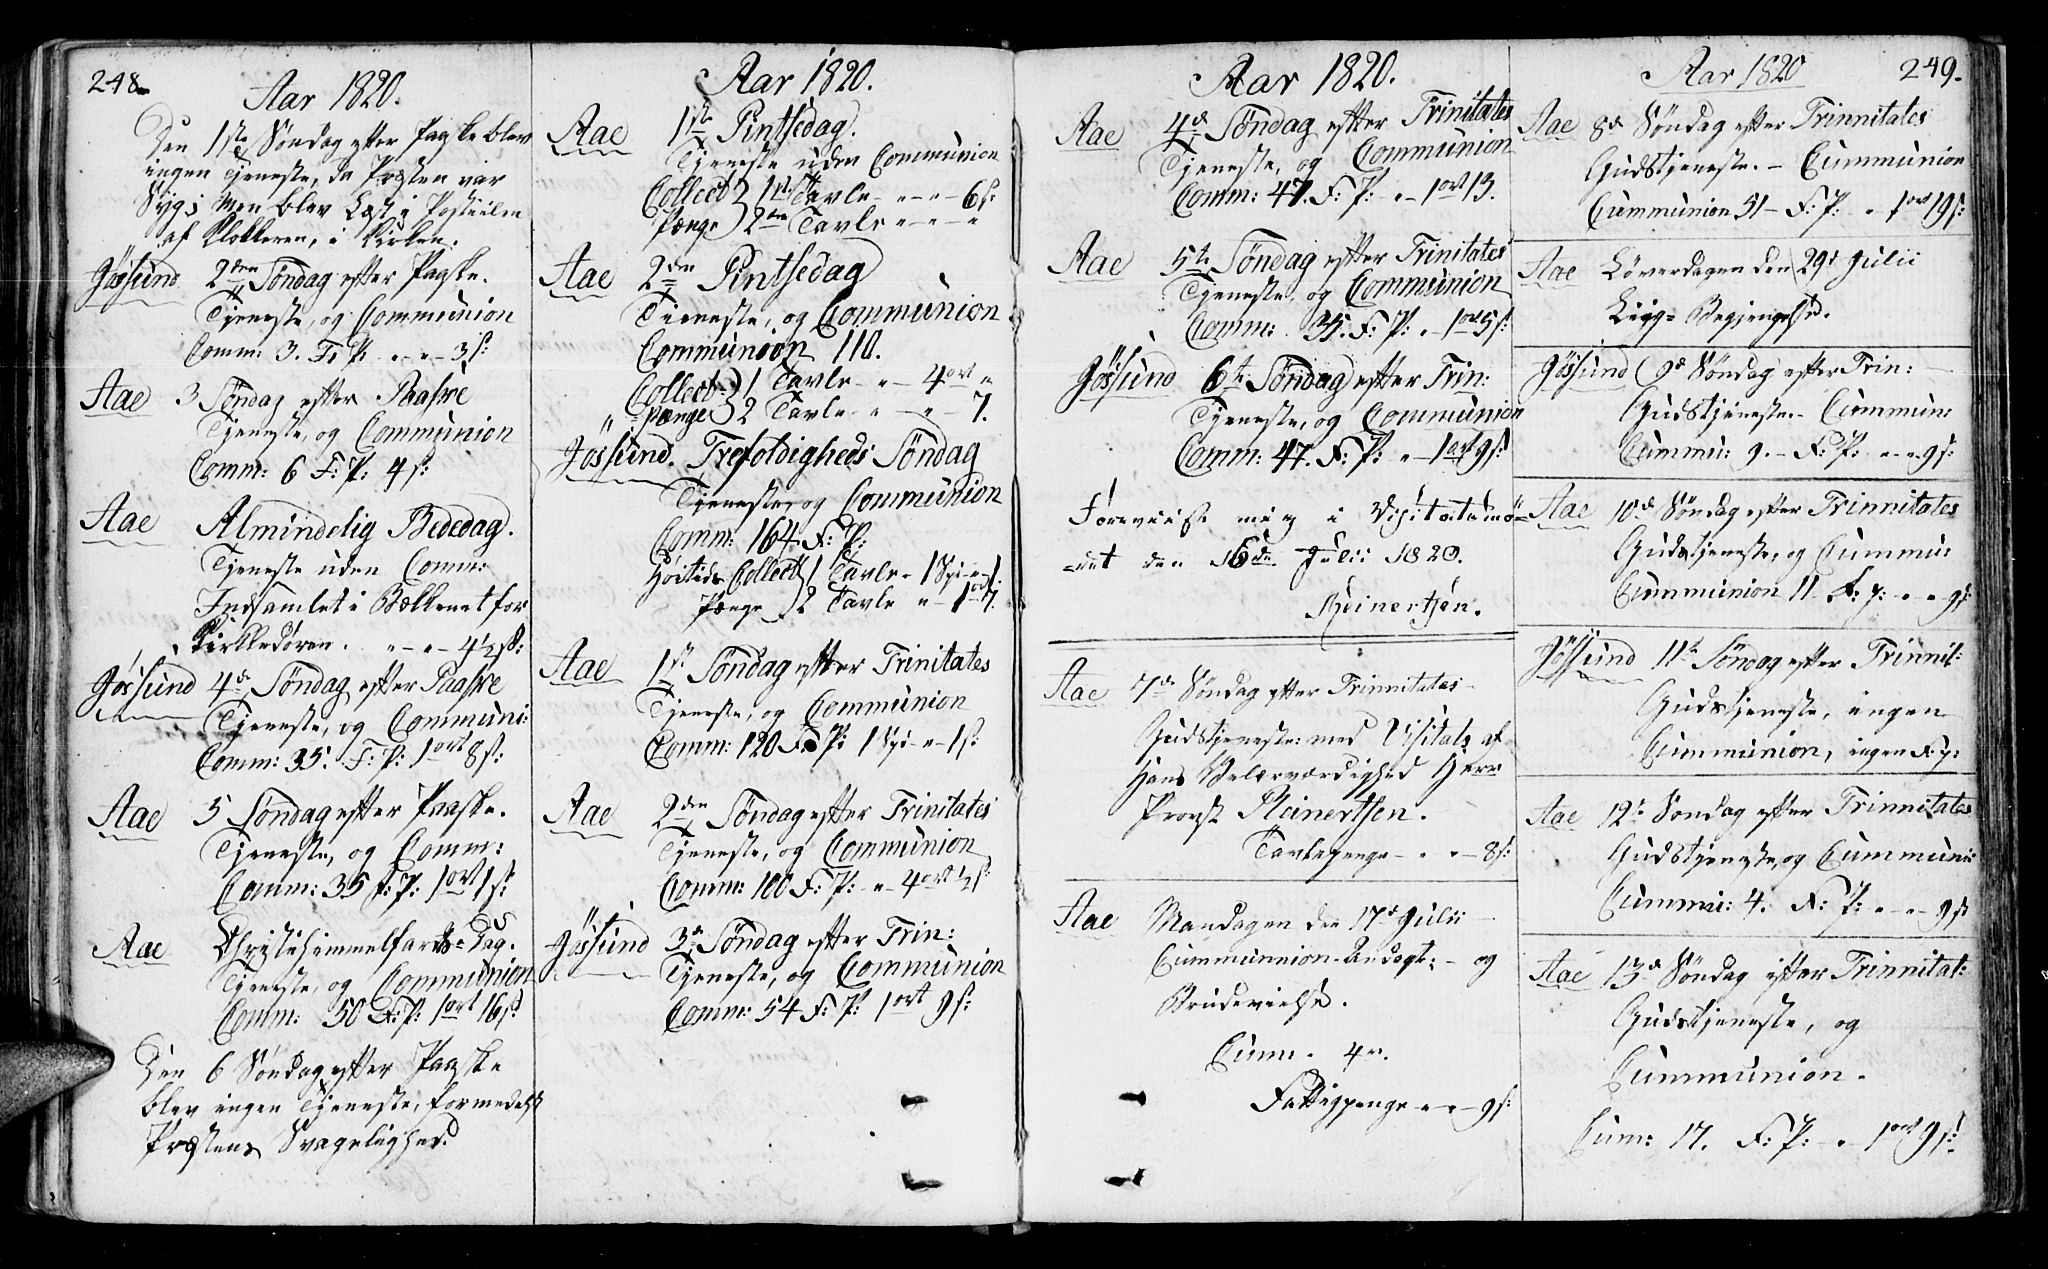 248.
Aar 1820.
Den 1ste Søndag efter Paaske blev
ingen Tjeneste, da Præsten var
Syg; Men blev Læst i Postillen
af Klokkeren, i Kirken.
Jössund 2den Søndag efter Paaske.
Tjeneste, og Communion
Comm: 3. F: P: „ – „ – 3 s:
Aae 3 Søndag efter Paaske
Tjeneste, og Communion
Comm: 6 F: P: 4 s:
Aae Almindelig Bededag.
Tjeneste uden Comm:
Indsamlet i Bækkenet for
Kirkedøren. „ – „ – 4½ s:
Jössund 4de Søndag efter Paaske
Tjeneste, og Communi:
Comm: 35. F: P: 1 ort 8 s:
Aae 5 Søndag efter Paaske.
Tjeneste, og Comm:
Comm: 35 F: P: 1 ort 1 s:
Aae Christihimmelfarts-Dag.
Tjeneste, og Communion
Comm: 50 F: P: 1 ort 16 s:
Den 6 Søndag efter Paaske
blev ingen Tjeneste, formedelst
Præstens Svagelighed.
Aar 1820.
Aae 1ste Pintsedag.
Tjeneste uden Communion
Collect 1ste Tavle – „ – „ – 6 s:
Pænge 2den Tavle „ – „ – „
Aae 2den Pintsedag
Tieneste, og Communion
Communion 110.
Collect: 1 Tavle – „ – 4 ort „
Pænge 2 Tavle „ – „ – 7.
Jössund. Trefoldigheds Söndag
Tjeneste, og Communion
Comm: 164 F: P:
Høitids Collect 1 Tavle – 1 Spi – „ – 1.
Pænge 2 Tavle „ – 1 ort 7.
Aae 1ste Søndag efter Trinitates
Tjeneste, og Communion
Comm: 120 F: P: 1 Spi – „ – 1 s:
Aae 2den Søndag efter Trinitates
Tjeneste, og Communion
Comm: 100 F: P: – „ – 4 ort ½ s:
Jössund 3de Søndag efter Trin:
Tjeneste, og Communion
Comm: 54 F: P: 1 ort 9 s:
Aar 1820.
Aae 4de Søndag efter Trinitates
Tjeneste, og Communion
Comm: 47. F: P: „ – 1 ort 13.
Aae 5te Søndag efter Trinitates
Tjeneste, og Communion
Comm: 35. F: P: „ – 1 ort 5 s:
Jössund 6te Søndag efter Trin:
Tjeneste, og Communion
Comm: 47. F: P: „ – 1 ort 9 s:
Foreviist mig i Visitatsmö-
det den 16de Julii 1820.
Reinertsen.
Aae 7de Søndag efter Trinnitates
Gudstjeneste: med Visitats af
Hans Velærværdighed Herr
Provst Reinertsen.
Tavlepenge – „ – „ – 8 s:
Aae Mandagen den 17de Julii
Cummunnion-Andagt: – og
Brudevielse.
Cumm. 4 „.
Fattigpenge „ – „ – 9 s:
Aar 1820
249.
Aae 8de Søndag efter Trinnitates
Gudstjeneste. – Cummunion
Cummunion 51 – F: P: „ 1 ort 19 s:
Aae Løverdagen den 29de Julii
Liig-Begjengelse.
Jössund 9de Søndag efter Trin:
Gudstjeneste. – Cummun:
Cummu: 9. – F: P: „ – „ 9 s:
Aae 10de Søndag efter Trinnitates
Gudstjeneste, og Cummu:
Cummunion 11 – F: p: – „ – „ 9 s:
Jössund 11te Søndag efter Trinnit:
Gudstjeneste, ingen
Cummunion, ingen F: p:
Aae 12te Søndag efter Trinnitates
Gudstjeneste, og Cummuni:
Cummu: 4. F: P: „ – „ – 9 s:
Aae 13de Søndag efter Trinnitat:
Gudstjeneste, og
Cummunion.
Cum: 17. F: P: – „ – 1 ort 9 s: